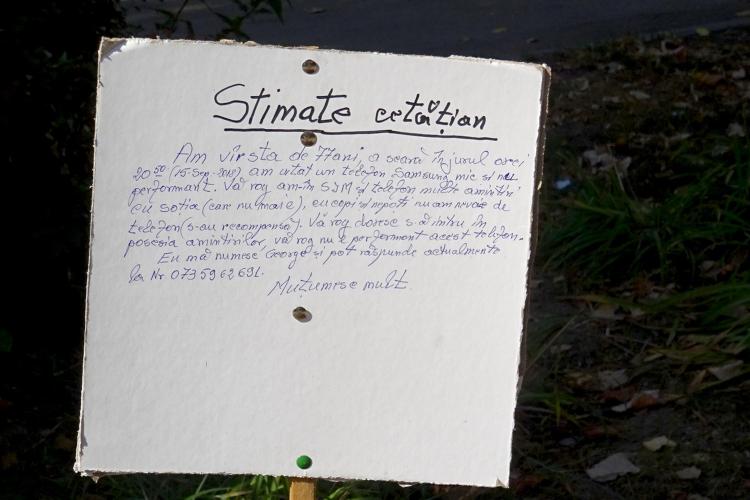 Stimate cetățian
Am vîrsta de 77ani, a seară în jurul orei
20⁵⁰ (15-Sep.-2018) am uitat un telefon Samsung mic și nu
performant. Vă rog am în SIM și telefon multe amintiri
cu soția (care nu mai e), cu copii și nepoți nu am nevoie de
telefon (s-au recompensa). Vă rog doresc s-ă intru în
posesia amintirilor, vă rog nu e performant acest telefon.
Eu mă numesc George și pot răspunde actualmente
la Nr 0735962691.
Muțumesc mult.